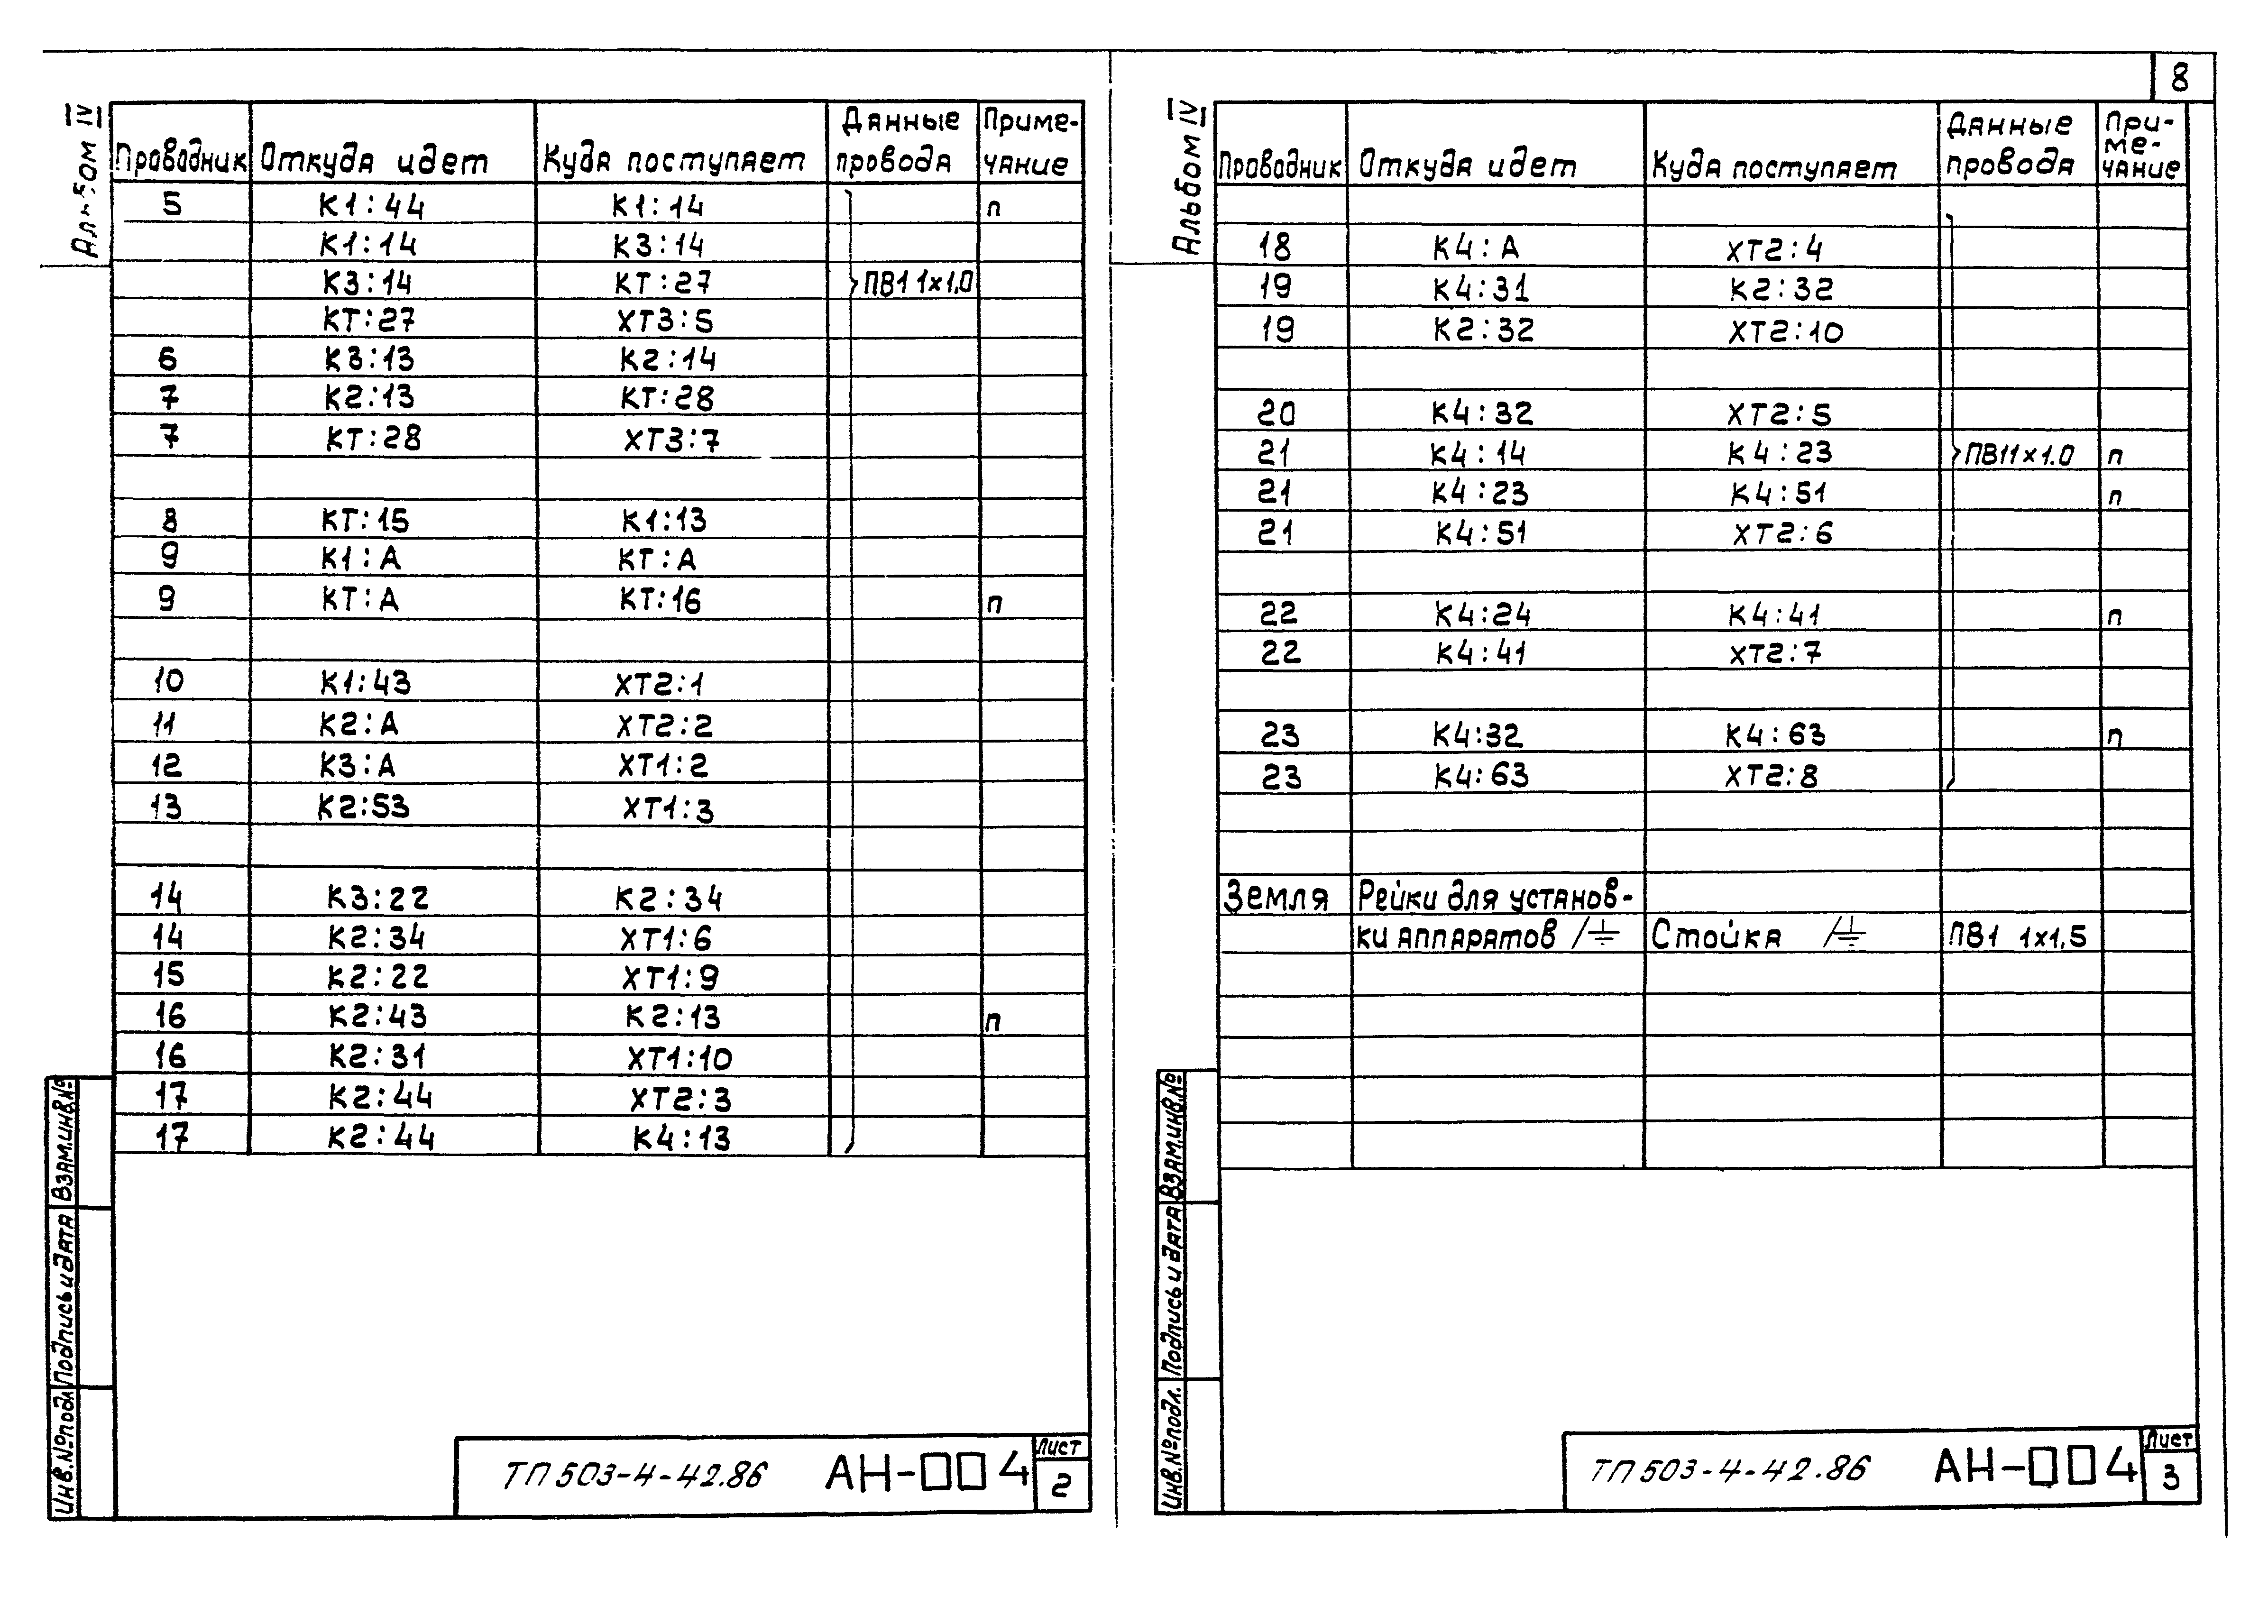 8
Альбом IV
Проводник Откуда идет Куда поступает Данные провода Приме-чание
5 К1:44 К1:14 п
К1:14 К3:14
К3:14 КТ:27 ПВ1 1х1.0
КТ:27 ХТ3:5
6 К3:13 К2:14
7 К2:13 КТ:28
7 КТ:28 ХТ3:7
8 КТ:15 К1:13
9 К1:А КТ:А
9 КТ:А КТ:16 п
10 К1:43 ХТ2:1
11 К2:А ХТ2:2
12 К3:А ХТ1:2
13 К2:53 ХТ1:3
14 К3:22 К2:34
14 К2:34 ХТ1:6
15 К2:22 ХТ1:9
16 К2:43 К2:13 п
16 К2:31 ХТ1:10
17 К2:44 ХТ2:3
17 К2:44 К4:13
Инв.№подл. Подпись и дата Взам.инв.№
ТП 503-4-42.86 АН-□□4 Лист 2
Альбом IV
Проводник Откуда идет Куда поступает Данные провода При-ме-чание
18 К4:А ХТ2:4
19 К4:31 К2:32
19 К2:32 ХТ2:10
20 К4:32 ХТ2:5
21 К4:14 К4:23 ПВ1 1х1.0 п
21 К4:23 К4:51 п
21 К4:51 ХТ2:6
22 К4:24 К4:41 п
22 К4:41 ХТ2:7
23 К4:32 К4:63 п
23 К4:63 ХТ2:8
Земля Рейки для установ-
ки аппаратов /⏚ Стойка /⏚ ПВ1 1х1.5
Инв.№подл. Подпись и дата Взам.инв.№
ТП 503-4-42.86 АН-□□4 Лист 3